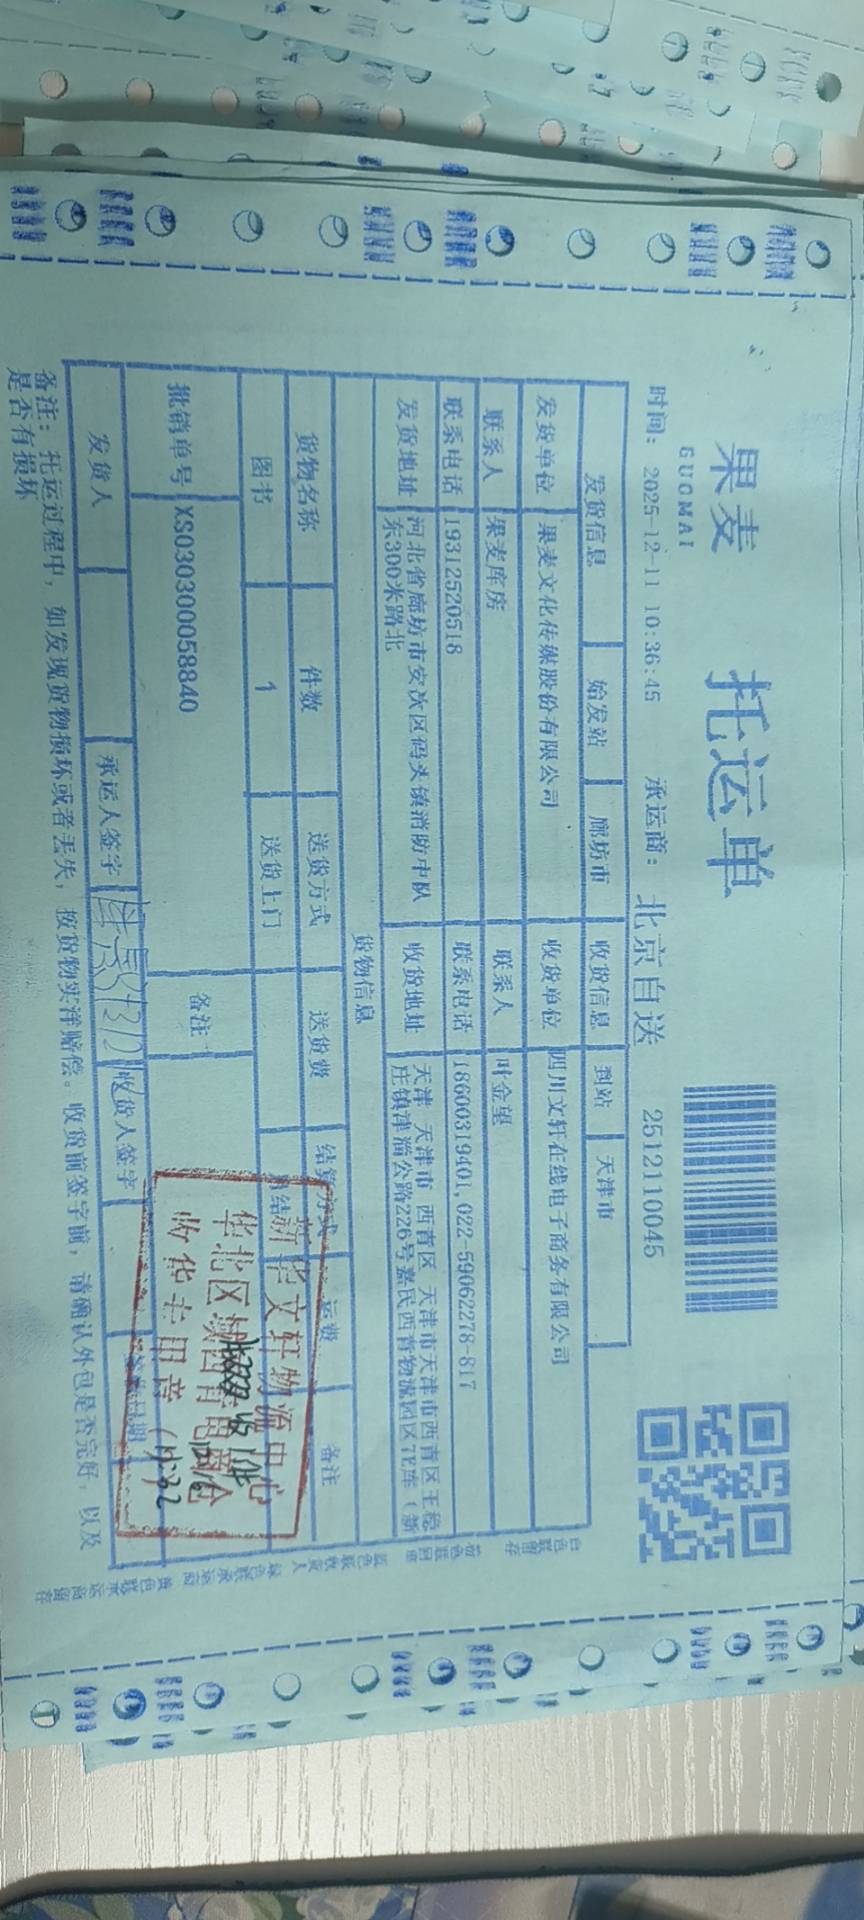 果麦 托运单
GUOMAI
时间: 2025-12-11 10:36:45 承运商: 北京自送 2512110045
发货信息 始发站 廊坊市 收货信息 到站 天津市
发货单位 果麦文化传媒股份有限公司 收货单位 四川文轩在线电子商务有限公司
联系人 果麦库房 联系人 叶金望
联系电话 19312520518 联系电话 18600319401,022-59062278-817
发货地址 河北省廊坊市安次区码头镇消防中队东300米路北 收货地址 天津 天津市 西青区 天津市天津市西青区王稳庄镇津淄公路226号嘉民西青物流园区7E库（新
货物信息
货物名称 件数 送货方式 送货费 结算方式 运费 备注
图书 1 送货上门
批销单号 XS030300058840 备注
发货人 承运人签字 收货人签字
备注: 托运过程中, 如发现货物损坏或者丢失, 按货物实洋赔偿。收货前签字前, 请确认外包是否完好, 以及
是否有损坏
新华文轩物流中心
收货专用章